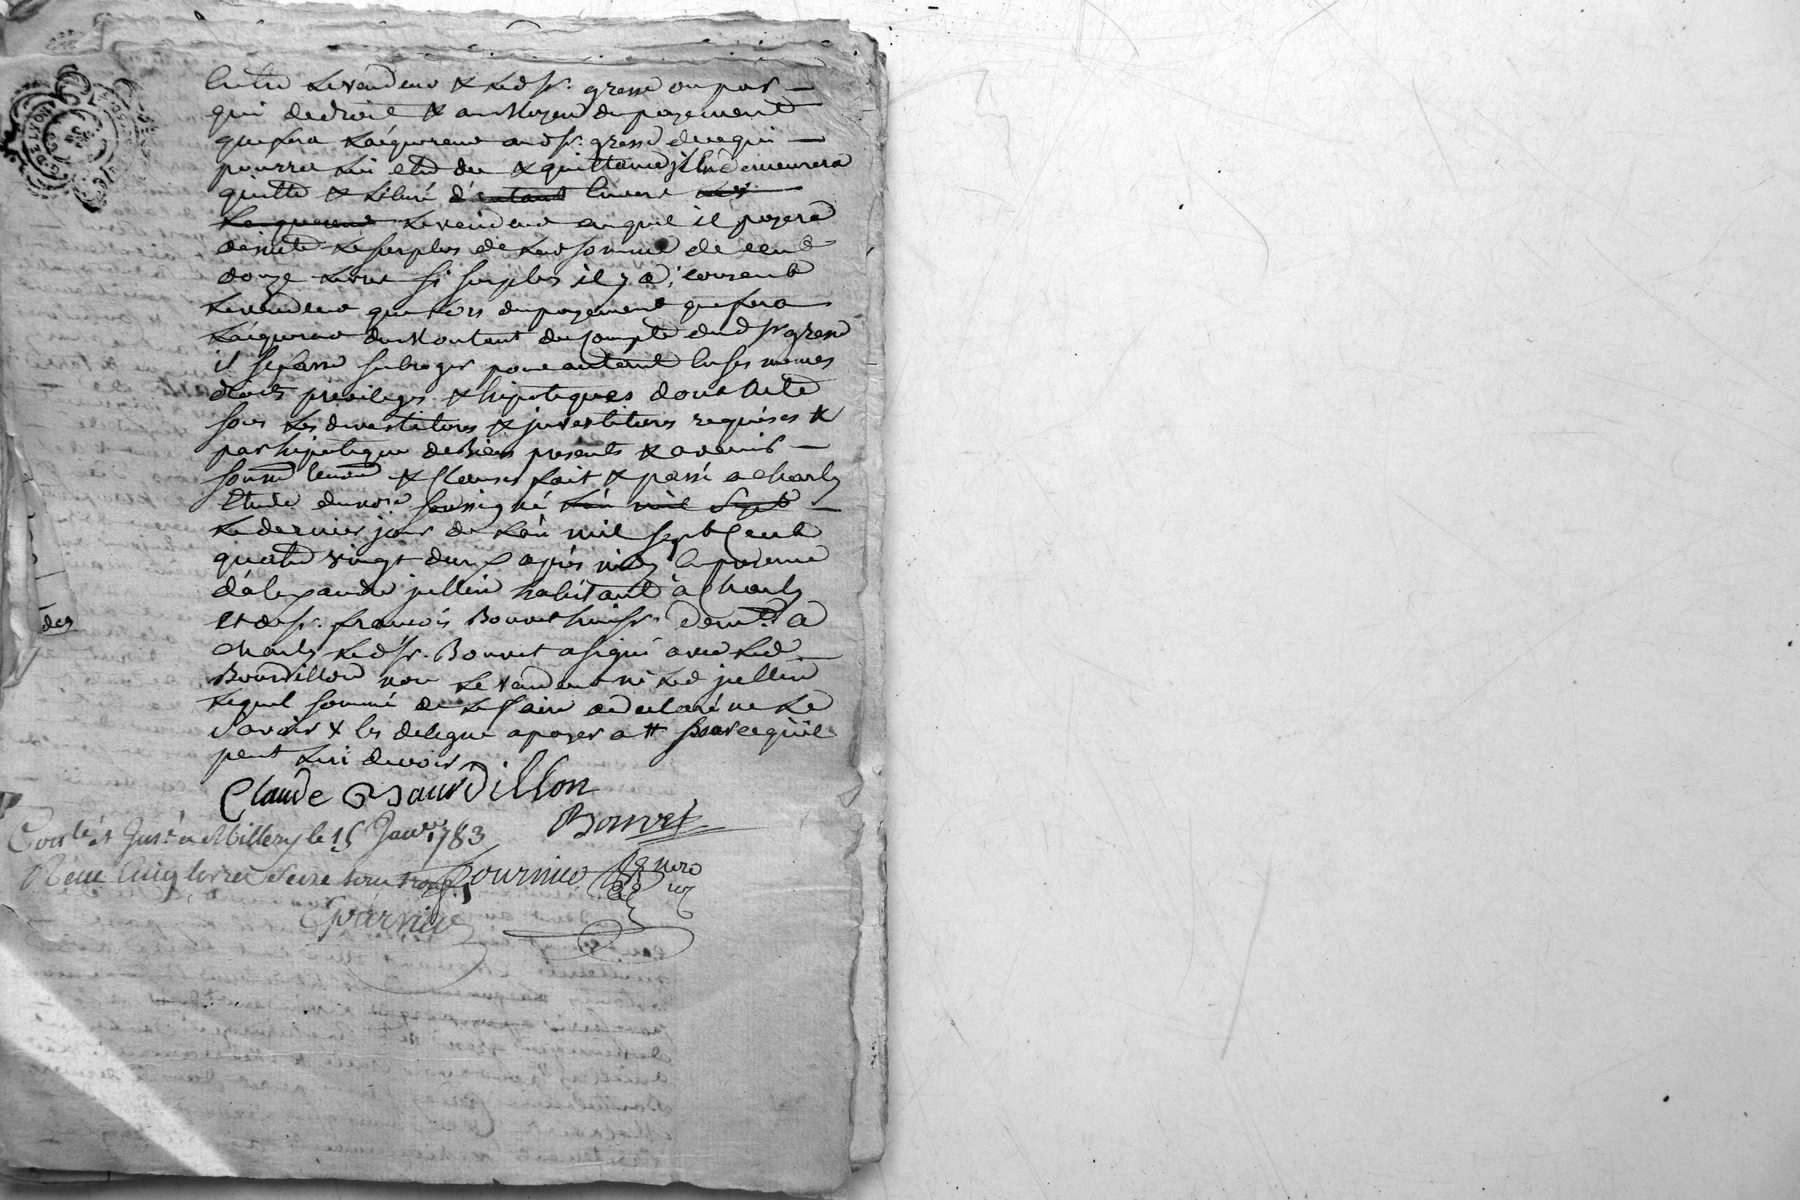 Entre le vendeur & led sr. gresse ou par
qui de droit & au moyen du payement
que fera l'aquereur aud sr. gresse de ce qui
pourra lui etre du & quittancé il en demeurera
quitte & liberé d'autant envers
le vendeur auquel il payera
de suite le surplus de lad somme de cent
douze livres si surplus il y a, consent
le vendeur que lors du payement que fera
l'aquereur du montant du compte dud sr gresse
il se fasse subroger pour autant en ses memes
droits privileges & hipoteques dont acte
sous les devestitures & investitures requises &
par hipoteque de biens presents & avenir
soumon renon & clauses fait & passé a charly
Etude du nore soussigné l'an mil sept
le dernier jour de l'an mil sept cent
quatre vingt deux apres midy en presence
d'alexandre jullien habitant à charly
et de sr. francois Bouvet huissr. demt. a
charly led sr. Bouvet a signé avec led
Bourdillon non le vendeur ni led jullien
lequel sommé de le faire a declaré ne le
savoir & les delegue a payer a # pour ce qu'il
peut lui devoir
Claude Bourdillon
Bouvet
Conlé et Insé a Millery le 15 Janvr. 1783
Reçu cinq livres seize sous Fournier
Fournier